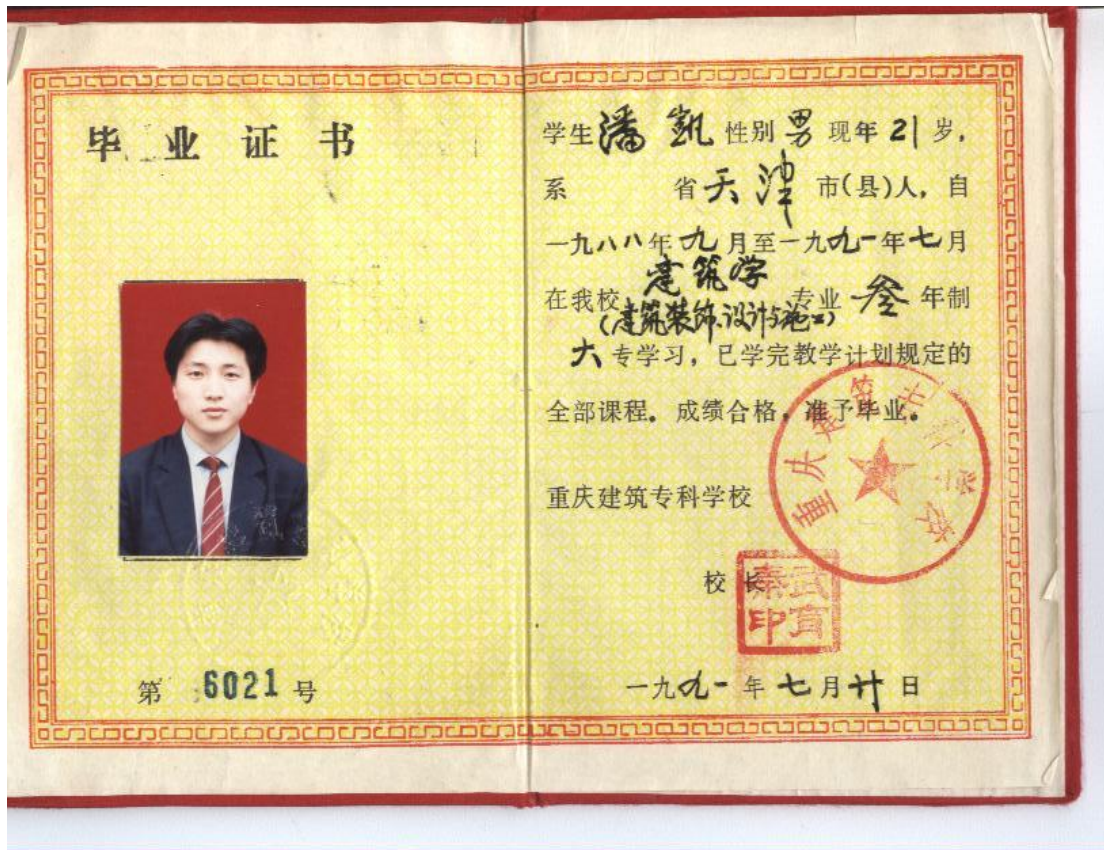 毕业证书
第 6021 号
学生潘凱性别男现年21岁,
系 省天津市(县)人,自
一九八八年九月至一九九一年七月
在我校建筑学专业叁年制
(建筑装饰设计与施工)
大专学习,已学完教学计划规定的
全部课程。成绩合格,准予毕业。
重庆建筑专科学校
校长
秦武育印
一九九一年七月廿日
重庆建筑专科学校